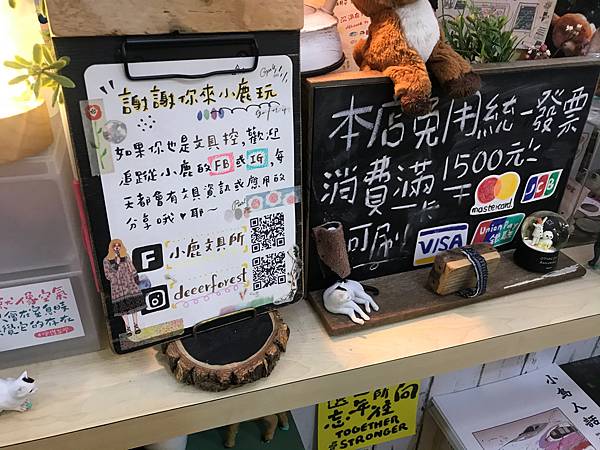 謝謝你來小鹿玩
如果你也是文具控,歡迎
追蹤小鹿的FB或IG,每
天都會有文具資訊或應用的
分享哦♥耶~
小鹿文具所
deeerforest
本店免用統一發票
消費滿1500元
可刷卡
mastercard
JCB
VISA
UnionPay
銀聯
忘年往向
TOGETHER
#STRONGER
小島人話